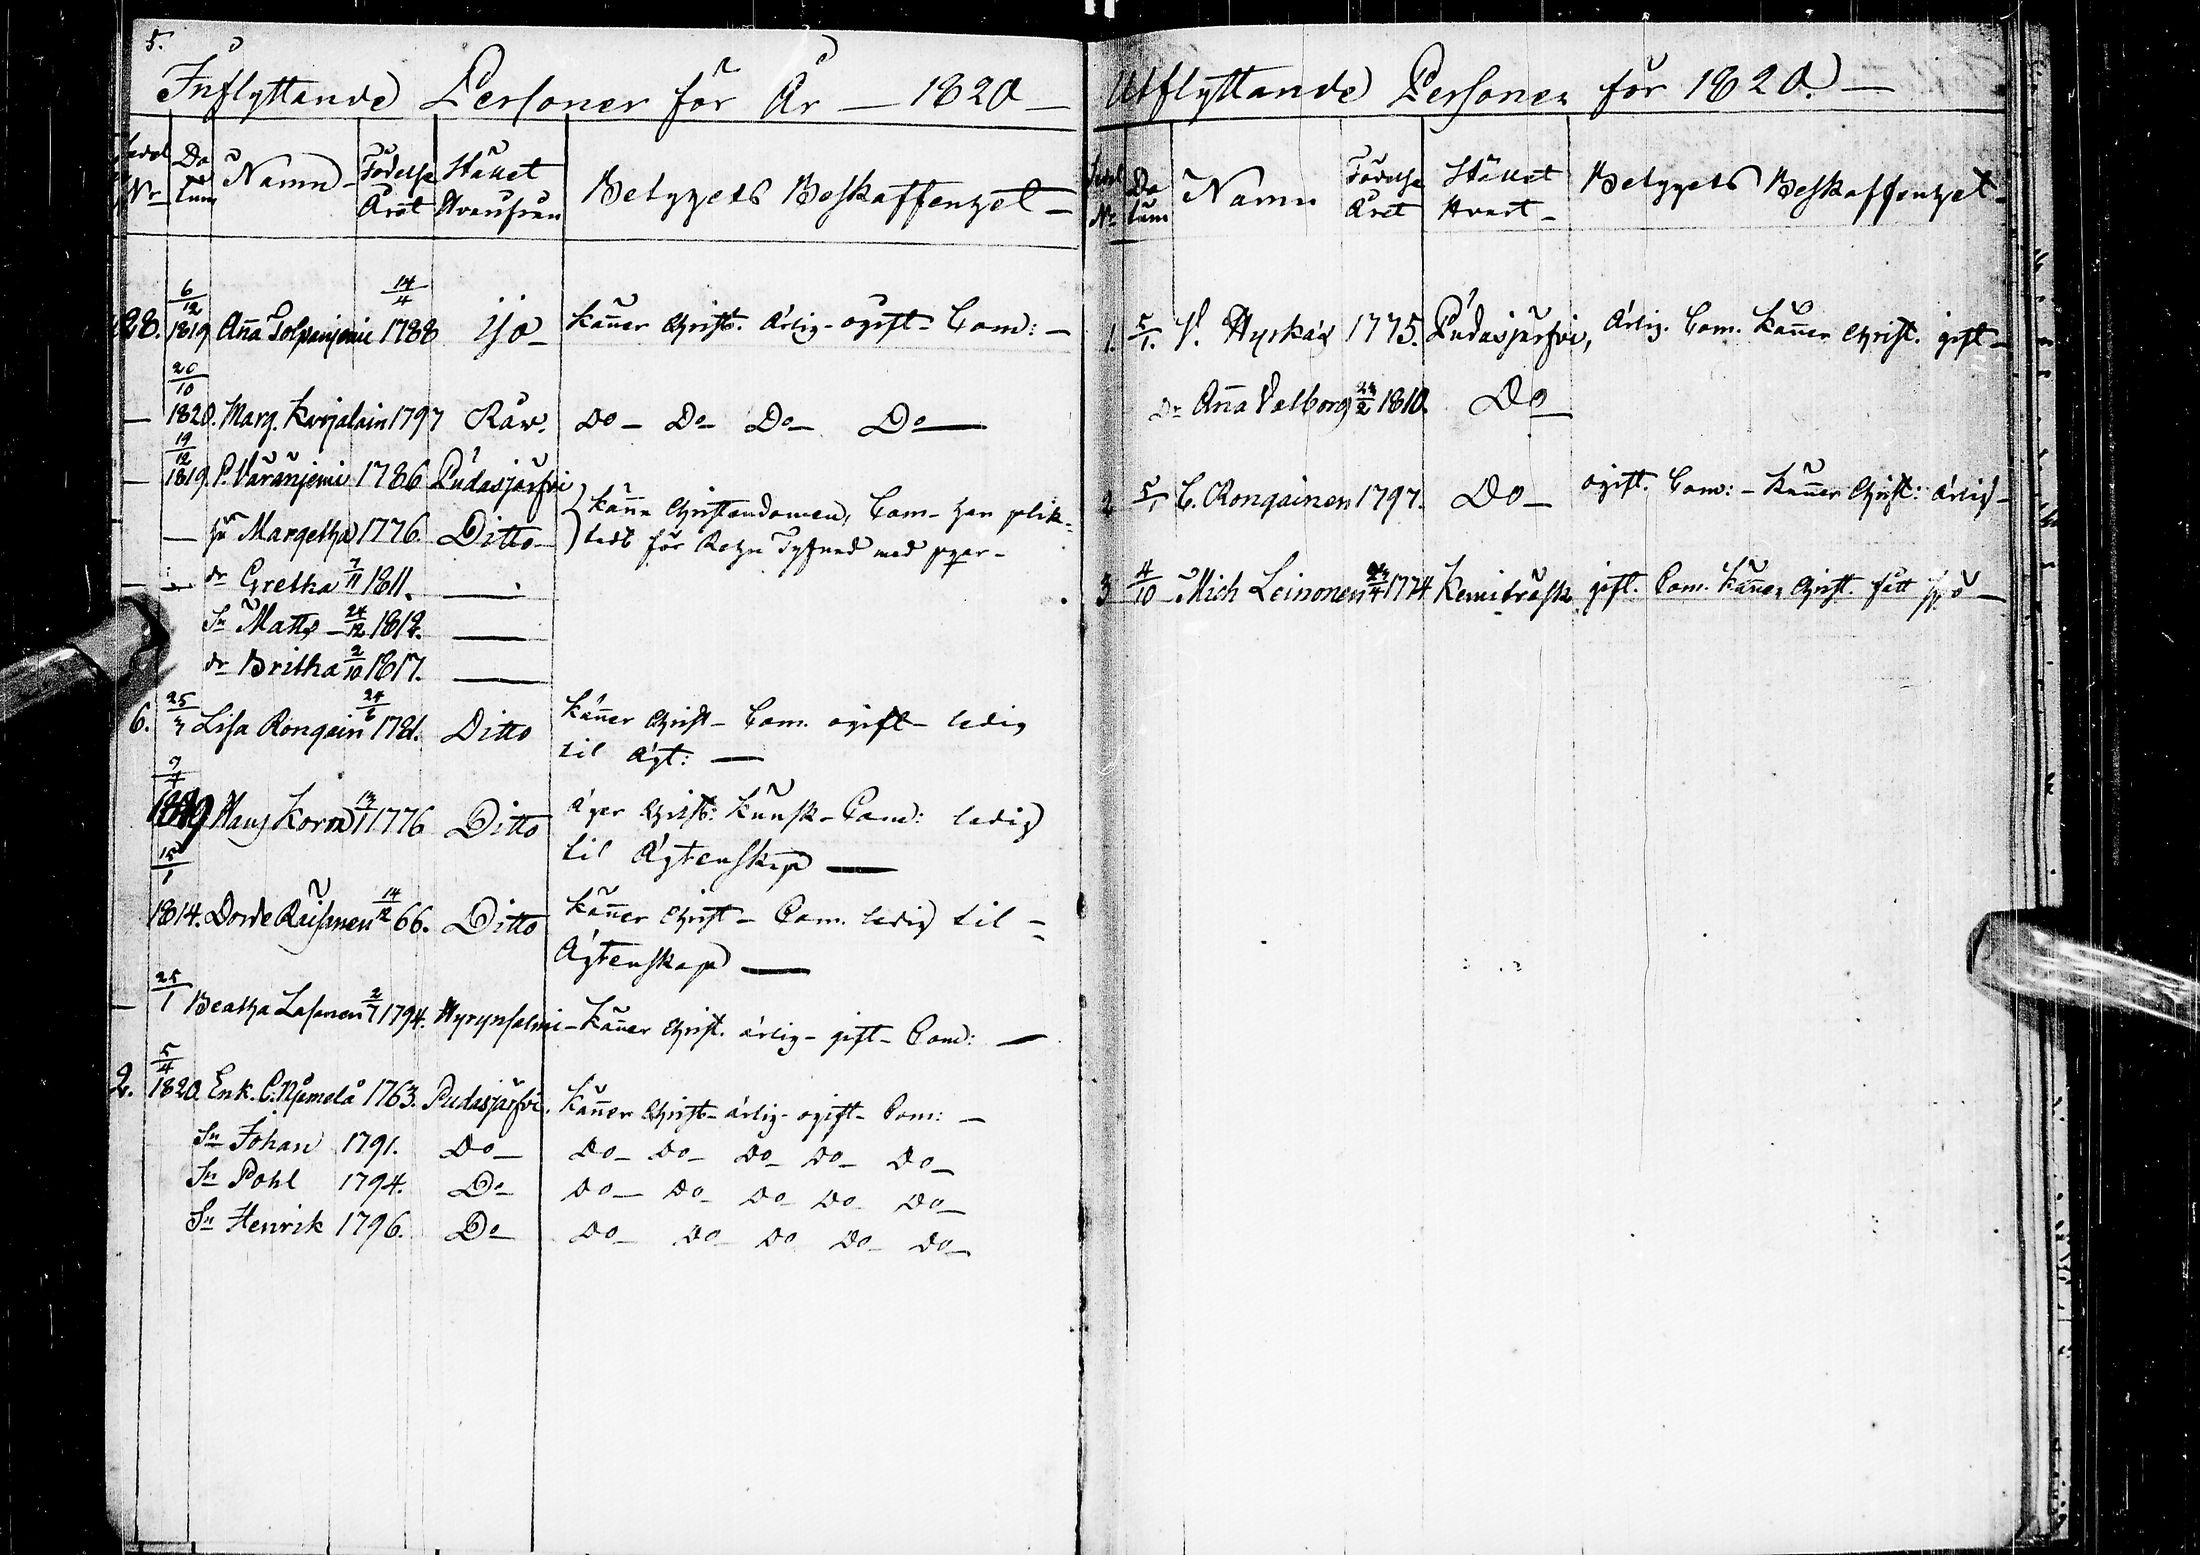 5.
Inflyttande Personer för År — 1820 —
Sedel No Datum Namn Födelse Året Stället Hvarifrån Betygets Beskaffenhet —
28. 6/12 1819 Anna Tolpanjemi 14/4 1788 Ijo — känner Christ. Ärlig - ogift - Com: —
— 20/10 1820. Marg. Karjalain 1797 Råw. Do — Do — Do — Do —
— 19/12 1819. P. Väränjemi 1786 Pudasjärfvi
— hu Margetha 1776. Ditto — känna Christendomen, Com -
dr Gretha 7/11 1811. —
Sn Matts — 24/12 1812. —
dr Britha 2/10 1817. —
6. 25/3 Lisa Rongain 24/6 1781. Ditto känner Christ - Com. ogift - ledig
til Ägt: —
7/4 1819 Hans Korva 13/1 1776 Ditto äger Christ: kunsk - Com: ledig
til Ägtenskap —
15/1 1814. Dorde Räisänen 14/12 66. Ditto känner Christ - Com. ledig til
Ägtenskap —
— 25/1 Beatha Lasanen 2/7 1794. Hyrynsalmi - känner Christ. ärlig - gift - Com: —
2. 5/4 1820 Enk. C. Njemelä 1763. Pudasjärfvi. känner Christ - ärlig - ogift - Com: —
Sn Johan 1791. Do — Do — Do — Do — Do — Do —
Sn Pohl 1794. Do — Do — Do — Do — Do — Do —
Sn Henrik 1796. Do — Do — Do — Do — Do — Do —
Utflyttande Personer för 1820. —
Sedel No Datum Namn Födelse Året Stället Hvart — Betygets Beskaffenhet —
1. 5/1. V. Hyrkäs 1775. Pudasjärfvi, Ärlig. Com. känner Christ. gift —
Dr Anna Valborg 24/2 1810. Do —
2 5/1 C. Rongainen 1797. Do — ogift. Com: - känner Christ: ärlig —
3 4/10 Mich Leinonen 24/4 1774 Kemiträsk gift. Com. känner Christ. fått